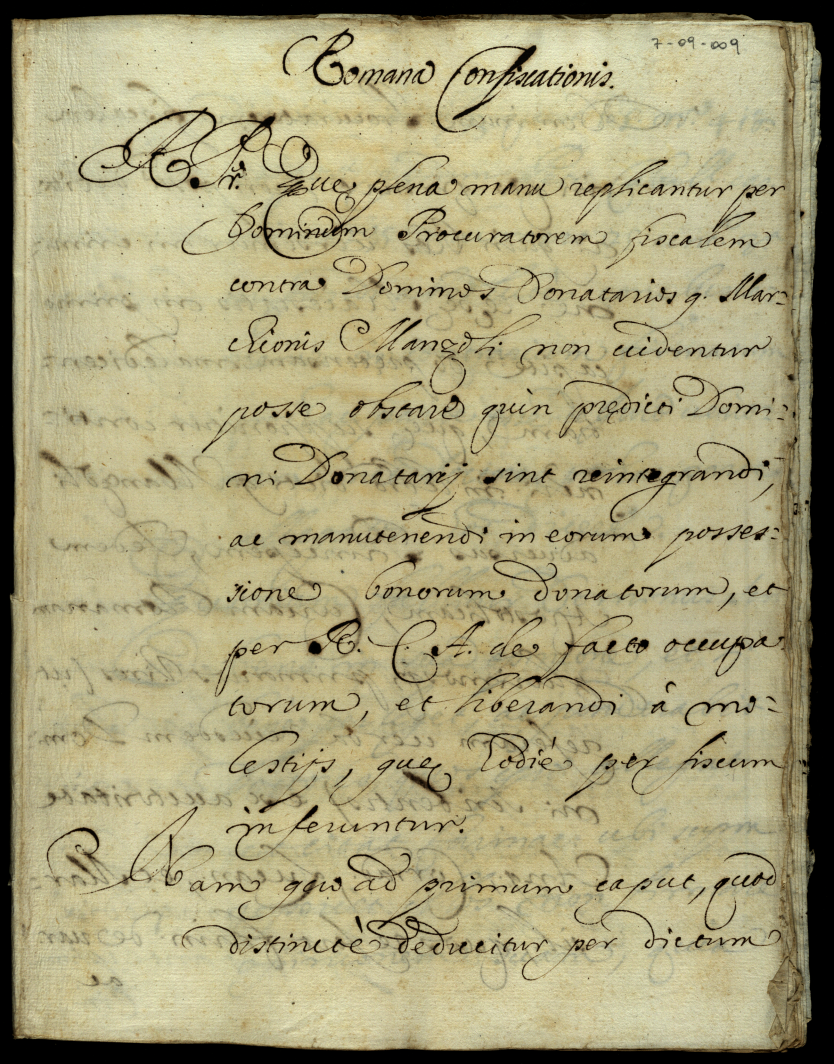 7-09-009
Romana Confiscationis.
R. P. Quę plena manu replicantur per
Dominum Procuratorem fiscalem
contra Dominos Donatarios q. Mar=
chionis Manzoli non uidentur
posse obstare quin prędicti Domi=
ni Donatarij sint reintegrandi,
ac manutenendi in eorum posses=
sione bonorum donatorum, et
per R. C. A. de facto occupa=
torum, et liberandi à mo=
lestijs, quę hodiè per fiscum
inferuntur.
Nam quo ad primum caput, quod
distinctè deducitur per dictum